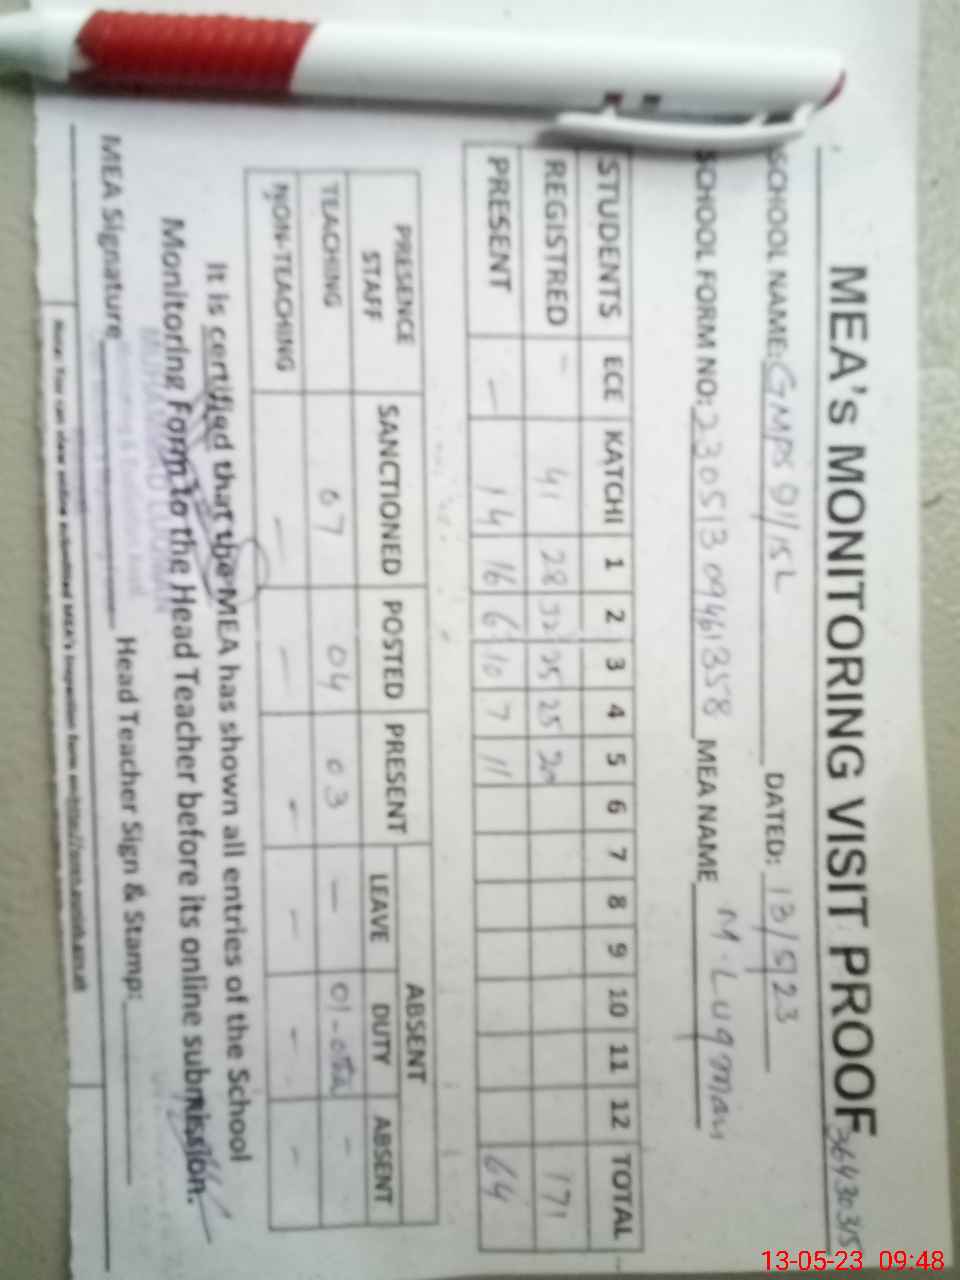 MEA's MONITORING VISIT PROOF
36430315
SCHOOL NAME: GMPS 91/15L DATED: 13/5/23
SCHOOL FORM NO: 23051309461358 MEA NAME M. Luqman
STUDENTS ECE KATCHI 1 2 3 4 5 6 7 8 9 10 11 12 TOTAL
REGISTRED - 41 28 32 25 25 20 171
PRESENT - 14 16 6 10 7 11 64
PRESENCE STAFF SANCTIONED POSTED PRESENT ABSENT
LEAVE DUTY ABSENT
TEACHING 07 04 03 - 01- -
NON-TEACHING - - - - - -
It is certified that the MEA has shown all entries of the School
Monitoring Form to the Head Teacher before its online submission.
MEA Signature Head Teacher Sign & Stamp:
Note: You can view online submitted MEA's inspection form on
13-05-23 09:48